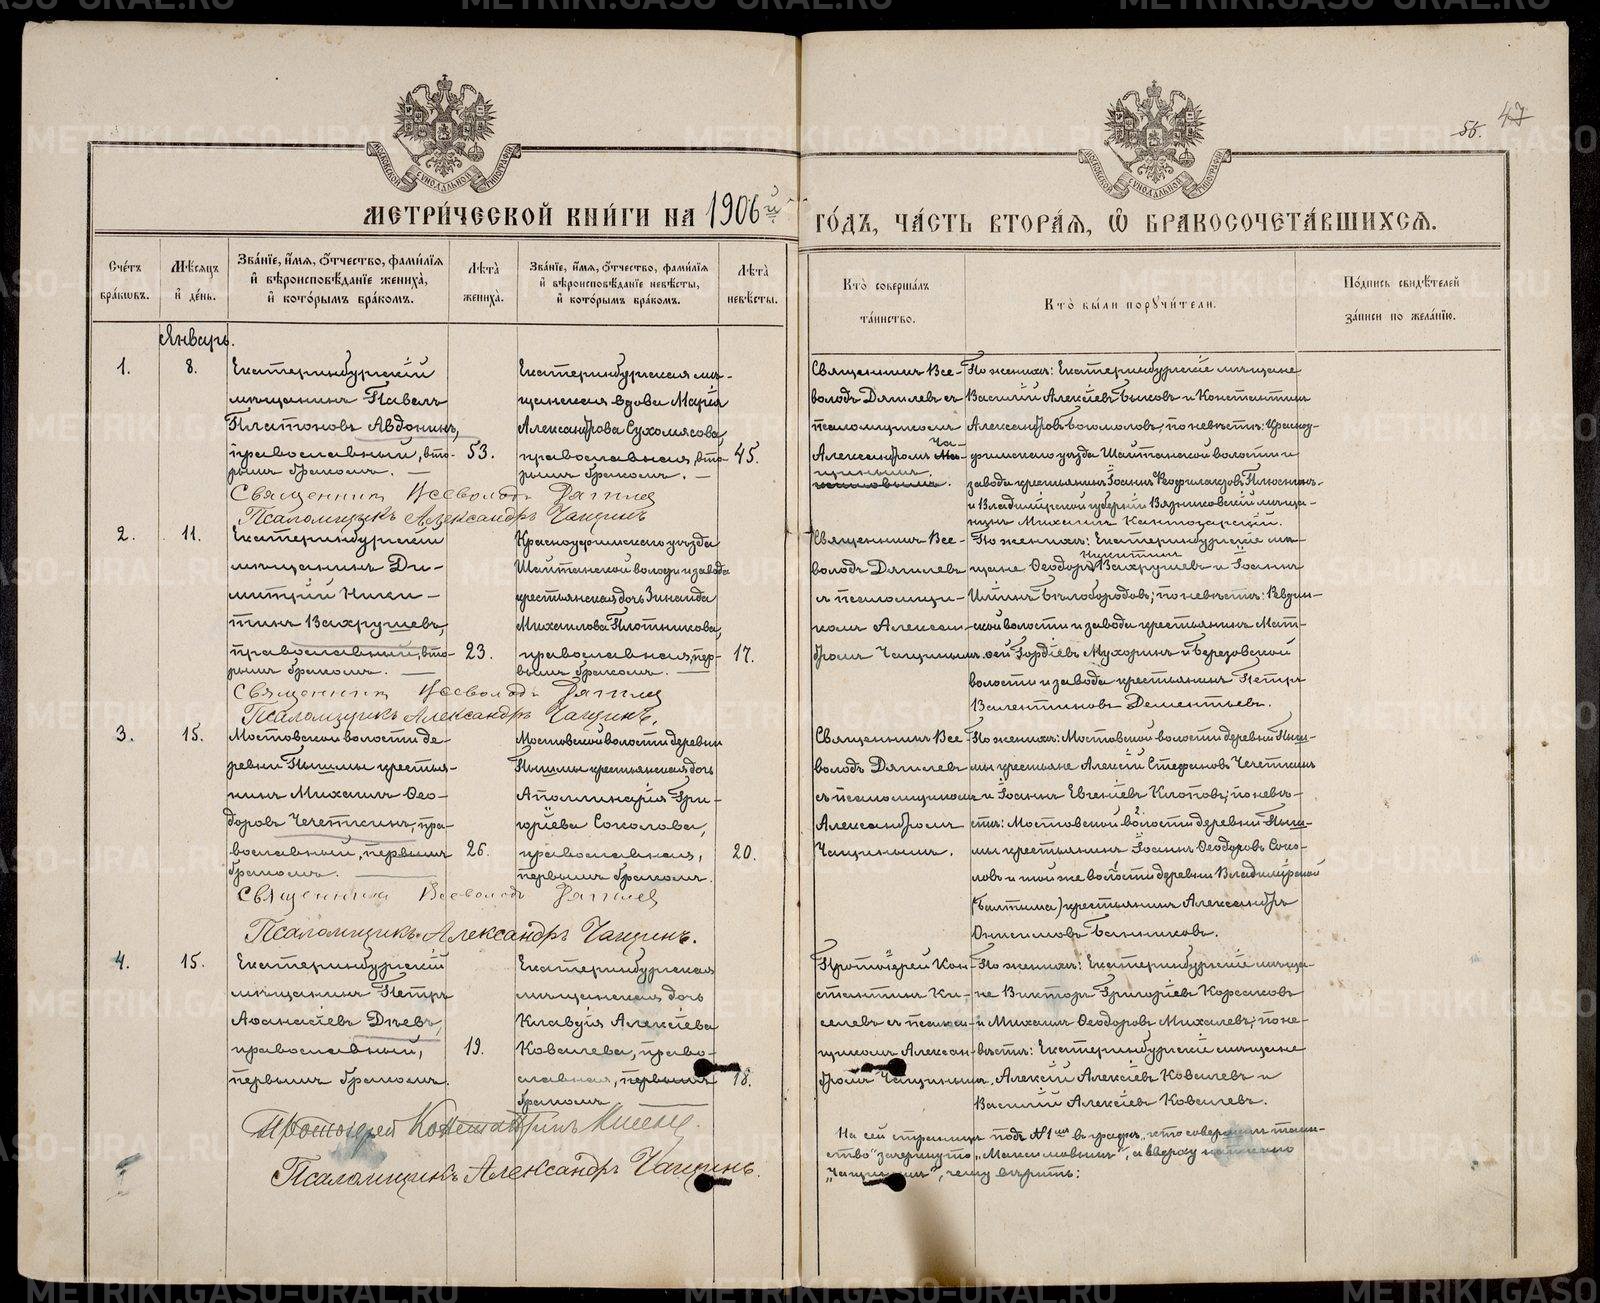 55. 47
МЕТРИ́ЧЕСКОЙ КНИ́ГИ НА 1906й ГО́ДЪ, ЧА́СТЬ ВТОРА́Я, Ѡ БРАКОСОЧЕТА́ВШИХСЯ.
Сче́тъ бра́ковъ.
Мѣ́сяцъ и де́нь.
Зва́нїе, и́мя, о́тчество, фами́лїя и вѣроисповѣ́данїе жениха̀, и кото́рымъ бра́комъ.
Лѣта̀ жениха̀.
Зва́нїе, и́мя, о́тчество, фами́лїя и вѣроисповѣ́данїе невѣ́сты, и кото́рымъ бра́комъ.
Лѣта̀ невѣ́сты.
Кто̀ соверша́лъ та́инство.
Кто̀ бы́ли поручи́тели.
По́дпись свидѣ́телей за́писи по жела́нїю.
Январь.
1.
8.
Екатеринбургскій
мѣщанинъ Павелъ
Платоновъ Авдонинъ,
православный, вто-
рымъ бракомъ. —
53.
Екатеринбургская мѣ-
щанская вдова Марія
Александрова Сухомясова,
православная, вто-
рымъ бракомъ. —
45.
Священникъ Все-
володъ Дягилевъ съ
псаломщикомъ
Александромъ Ча-
щинымъ.
По женихѣ: Екатеринбургскіе мѣщане
Василій Алексѣевъ Быковъ и Константинъ
Александровъ Богомоловъ; по невѣстѣ: Красноу-
фимскаго уѣзда Шайтанской волости и
завода крестьянинъ Іоаннъ
и Владимірской губерніи Вязниковскій мѣща-
нинъ Михаилъ
Священникъ Всеволодъ Дягилев
Псаломщикъ Александръ Чащинъ
2.
11.
Екатеринбургскій
мѣщанинъ Ди-
митрій Ники-
тинъ Вахрушевъ,
православный, вто-
рымъ бракомъ. —
23.
Красноуфимскаго уѣзда
Шайтанской волости и завода
крестьянская дочь Зинаида
Михаилова Плотникова,
православная, пер-
вымъ бракомъ. —
17.
Священникъ Все-
володъ Дягилевъ
съ псаломщи-
комъ Алексан-
дромъ Чащинымъ.
По женихѣ: Екатеринбургскіе мѣ-
щане Ѳеодоръ Никитинъ Вахрушевъ и Іоаннъ
Бѣлобородовъ; по невѣстѣ: Ревдин-
ской волости и завода крестьянинъ Мат-
ѳей Гордіевъ Мухоринъ и Березовской
волости и завода крестьянинъ Петръ
Валентиновъ Дементьевъ.
Священникъ Всеволодъ Дягилев
Псаломщикъ Александръ Чащинъ.
3.
15.
Мостовской волости де-
ревни Пышмы крестья-
нинъ Михаилъ Ѳео-
доровъ Чечеткинъ, пра-
вославный, первымъ
бракомъ. —
26.
Мостовской волости деревни
Пышмы крестьянская дочь
Аполлинарія Гри-
горіева Соколова,
православная,
первымъ бракомъ.
20.
Священникъ Все-
володъ Дягилевъ
съ псаломщикомъ
Александромъ
Чащинымъ.
По женихѣ: Мостовской волости деревни Пыш-
мы крестьяне Алексій Стефановъ Чечеткинъ
и Іоаннъ Евгеніевъ Клоповъ; по невѣ-
стѣ: Мостовской волости деревни Пыш-
мы крестьянинъ Іоаннъ Ѳеодоровъ Соко-
ловъ и той же волости деревни Владимірской
(Балтыма) крестьянинъ Александръ
Онисимовъ Банниковъ.
Священникъ Всеволодъ Дягилев
Псаломщикъ Александръ Чащинъ.
4.
15.
Екатеринбургскій
мѣщанинъ Петръ
Аѳанасіевъ Дѣевъ,
православный,
первымъ бракомъ.
19.
Екатеринбургская
мѣщанская дочь
Клавдія Алексіева
Ковалева, право-
славная, первымъ
бракомъ.
18.
Протоіерей Кон-
стантинъ Ки-
селевъ съ псалом-
щикомъ Алексан-
дромъ Чащинымъ.
По женихѣ: Екатеринбургскіе мѣща-
не Викторъ Григоріевъ Корсаковъ
и Михаилъ Ѳеодоровъ Михалевъ; по не-
вѣстѣ: Екатеринбургскіе мѣщане
Алексій Алексіевъ Ковалевъ и
Василій Алексіевъ Ковалевъ.
Протоіерей Константинъ Киселев
Псаломщикъ Александръ Чащинъ.
На сей страницѣ подъ №1мъ въ графѣ „кто совершалъ таин-
ство“ зачеркнуто „Максимовымъ“, а вверху написано
„Чащинымъ“, чему вѣрить: